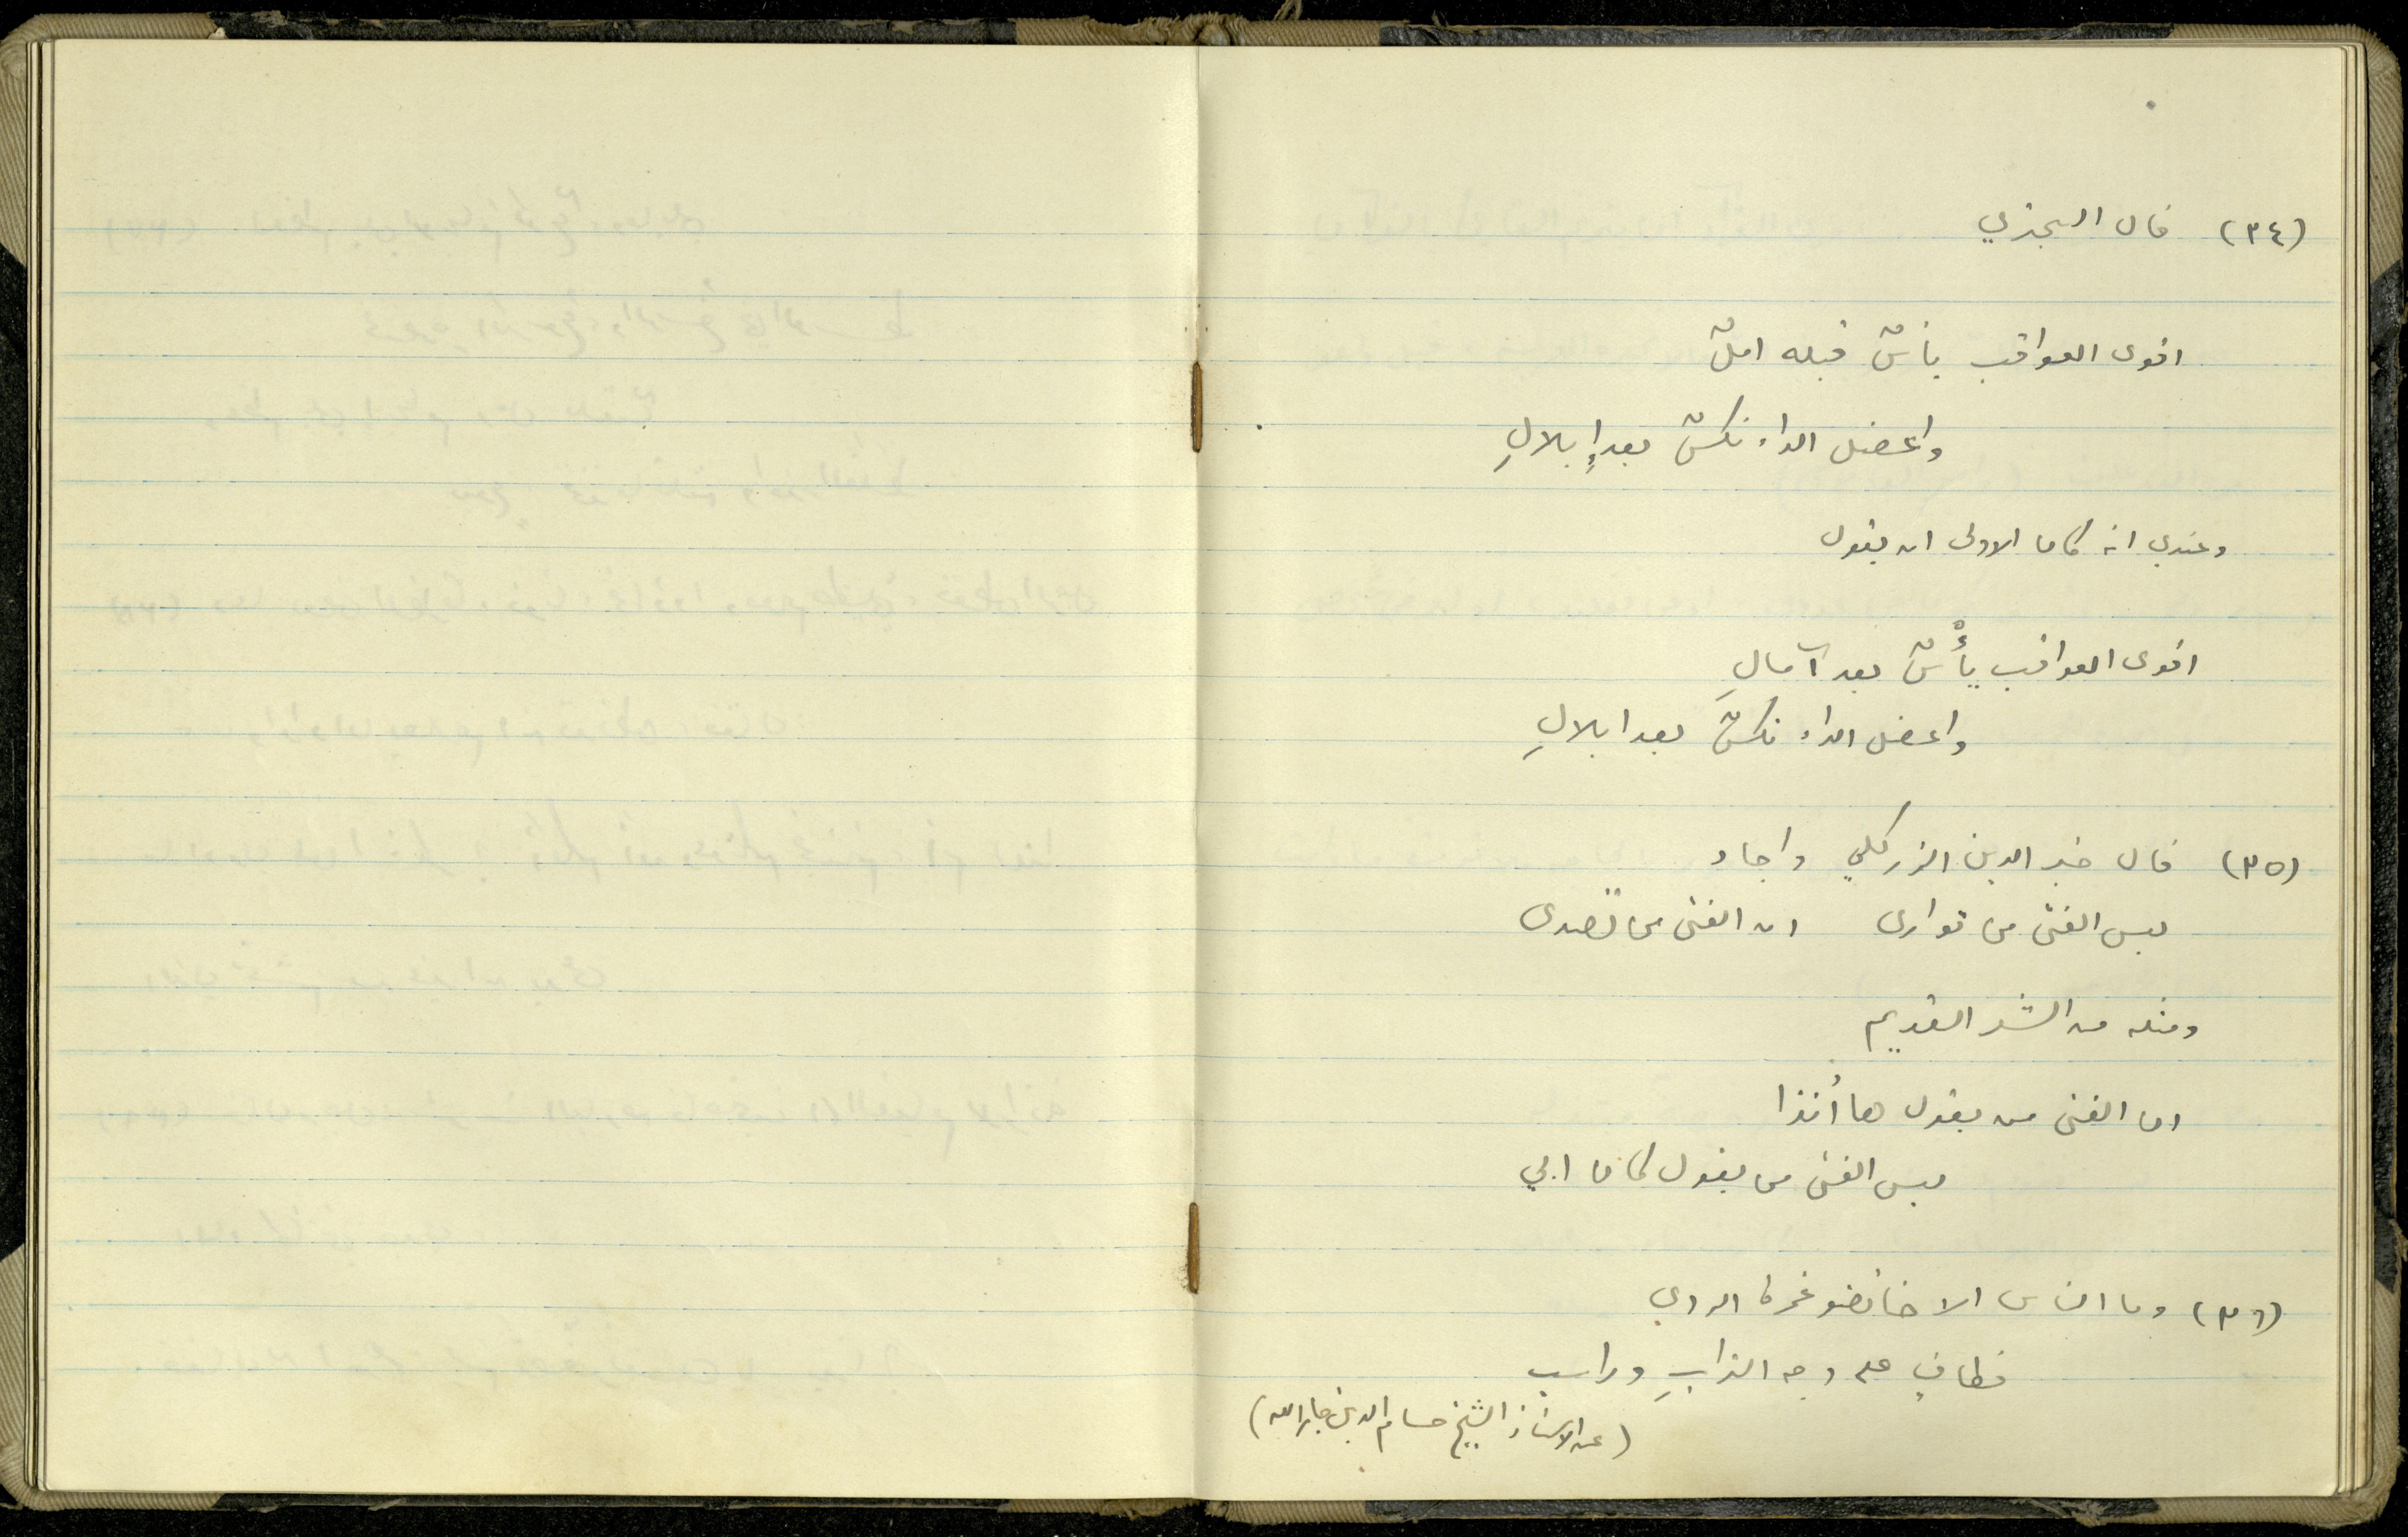 (٣٤) قال البحتري
اقوى العواقب يأسٌ قبله املٌ
واعضل الداء نكسٌ بعد إبلالِ
وعندي انه كان الاولى ان يقول
اقوى العواقب يأْسٌ بعد آمالِ
واعضل الداء نكسٌ بعد ابلالِ
(٣٥) قال خير الدين الزركلي واجاد
ليس الفتى من توارى ان الفتى من تصدى
ومثله من الشعر القديم
ان الفتى من يقول ها أنذا
ليس الفتى من يقول كان ابي
(٣٦) وما الناس الا خائضو غمرة الردى
فطافٍ على وجه الترابِ وراسب
(عن الاستاذ الشيخ حسام الدين جارالله)